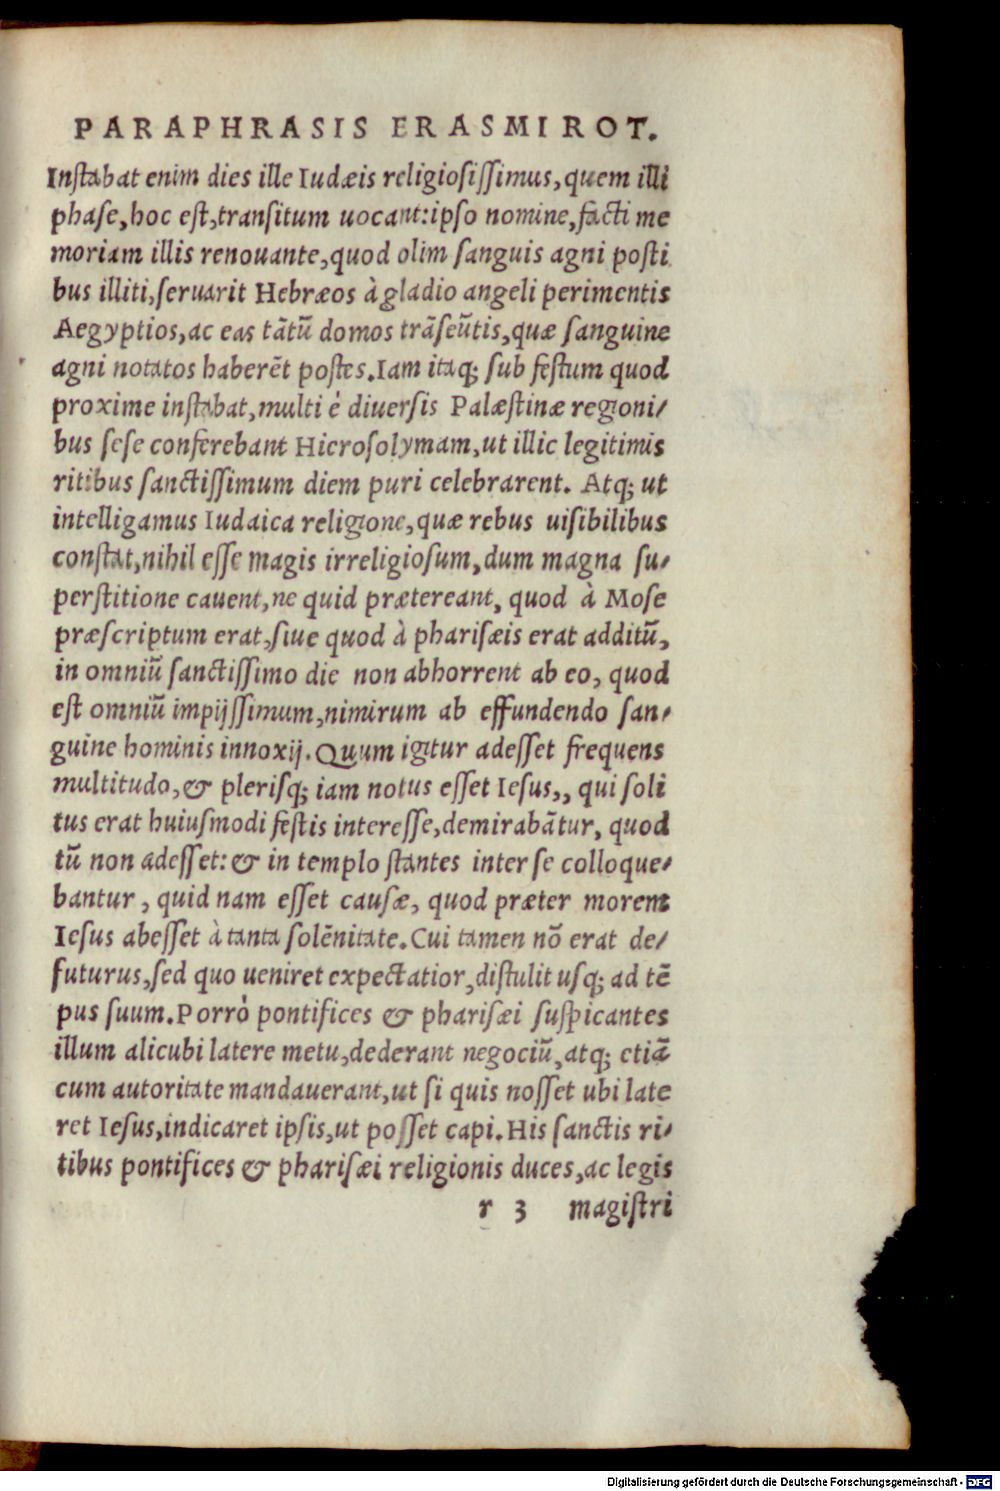 PARAPHRASIS ERASMI ROT.
Instabat enim dies ille Iudæis religiosissimus, quem illi
phase, hoc est, transitum uocant: ipso nomine, facti me
moriam illis renouante, quod olim sanguis agni posti
bus illiti, seruarit Hebræos à gladio angeli perimentis
Aegyptios, ac eas tãtũ domos trãseũtis, quæ sanguine
agni notatos haberẽt postes. Iam itaq; sub festum quod
proxime instabat, multi è diuersis Palæstinæ regioni/
bus sese conferebant Hierosolymam, ut illic legitimis
ritibus sanctissimum diem puri celebrarent. Atq; ut
intelligamus Iudaica religione, quæ rebus uisibilibus
constat, nihil esse magis irreligiosum, dum magna su/
perstitione cauent, ne quid prætereant, quod à Mose
præscriptum erat, siue quod à pharisæis erat additũ,
in omniũ sanctissimo die non abhorrent ab eo, quod
est omniũ impijssimum, nimirum ab effundendo san/
guine hominis innoxij. Quum igitur adesset frequens
multitudo, & plerisq; iam notus esset Iesus,, qui soli
tus erat huiusmodi festis interesse, demirabãtur, quod
tũ non adesset: & in templo stantes inter se colloque/
bantur, quid nam esset causæ, quod præter morem
Iesus abesset à tanta solẽnitate. Cui tamen nõ erat de/
futurus, sed quo ueniret expectatior, distulit usq; ad tẽ
pus suum. Porrò pontifices & pharisæi suspicantes
illum alicubi latere metu, dederant negociũ, atq; etiã
cum autoritate mandauerant, ut si quis nosset ubi late
ret Iesus, indicaret ipsis, ut posset capi. His sanctis ri/
tibus pontifices & pharisæi religionis duces, ac legis
r 3 magistri
Digitalisierung gefördert durch die Deutsche Forschungsgemeinschaft - DFG